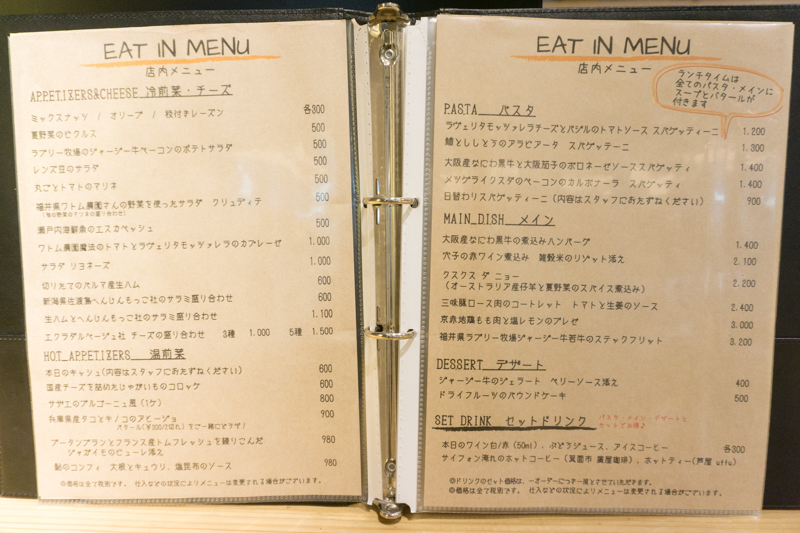 EAT IN MENU
店内メニュー
APPETIZERS&CHEESE 冷前菜・チーズ
ミックスナッツ / オリーブ / 枝付きレーズン 各300
夏野菜のピクルス 500
ラブリー牧場のジャージー牛ベーコンのポテトサラダ 500
レンズ豆のサラダ 500
丸ごとトマトのマリネ 500
福井県ワトム農園さんの野菜を使ったサラダ クリュディテ 500
(旬の野菜のマリネの盛り合わせ)
瀬戸内海鮮魚のエスカベッシュ 500
ワトム農園魔法のトマトとラヴェリタモッツァレラのカプレーゼ 1.000
サラダ リヨネーズ 1.000
切りたてのパルマ産生ハム 600
新潟県佐渡島へんじんもっこ社のサラミ盛り合わせ 600
生ハムとへんじんもっこ社のサラミ盛り合わせ 1.100
エクラダルページュ社 チーズの盛り合わせ 3種 1.000 5種 1.500
HOT APPETIZERS 温前菜
本日のキッシュ(内容はスタッフにおたずねください) 600
国産チーズを詰めたじゃがいものコロッケ 600
サザエのブルゴーニュ風(1ケ) 800
兵庫県産タコとキノコのアヒージョ 900
バタール(¥100/2切れ)をご一緒にどうぞ!
ブータンブランとフランス産トムフレッシュを練りこんだ 980
ジャガイモのピューレ添え
鮎のコンフィ 大根とキュウリ、塩昆布のソース 980
◎価格は全て税別です。 仕入などの状況によりメニューは変更される場合がございます。
EAT IN MENU
店内メニュー
ランチタイムは
全てのパスタ・メインに
スープとバタールが
付きます
PASTA パスタ
ラヴェリタモッツァレラチーズとバジルのトマトソース スパゲッティーニ 1.200
鱧とししとうのアラビアータ スパゲッティーニ 1.300
大阪産なにわ黒牛と大阪茄子のボロネーゼソーススパゲッティ 1.400
メツゲライクスダのベーコンのカルボナーラ スパゲッティ 1.400
日替わりスパゲッティーニ(内容はスタッフにおたずねください) 900
MAIN DISH メイン
大阪産なにわ黒牛の煮込みハンバーグ 1.400
穴子の赤ワイン煮込み 雑穀米のリゾット添え 2.100
クスクス ダニョー 2.200
(オーストラリア産仔羊と夏野菜のスパイス煮込み)
三味豚ロース肉のコートレット トマトと生姜のソース 2.400
京赤地鶏もも肉と塩レモンのブレゼ 3.000
福井県ラブリー牧場ジャージー牛若牛のステックフリット 3.200
DESSERT デザート
ジャージー牛のジェラート ベリーソース添え 400
ドライフルーツのパウンドケーキ 500
SET DRINK セットドリンク
パスタ・メイン・デザートと
セットでお得♪
本日のワイン白/赤(50ml)、ぶどうジュース、アイスコーヒー 各300
サイフォン淹れのホットコーヒー(箕面市 廣屋珈琲)、ホットティー(芦屋 uffu)
◎ドリンクのセット価格は、一オーダーにつき一杯とさせていただきます。
◎価格は全て税別です。 仕入などの状況によりメニューは変更される場合がございます。